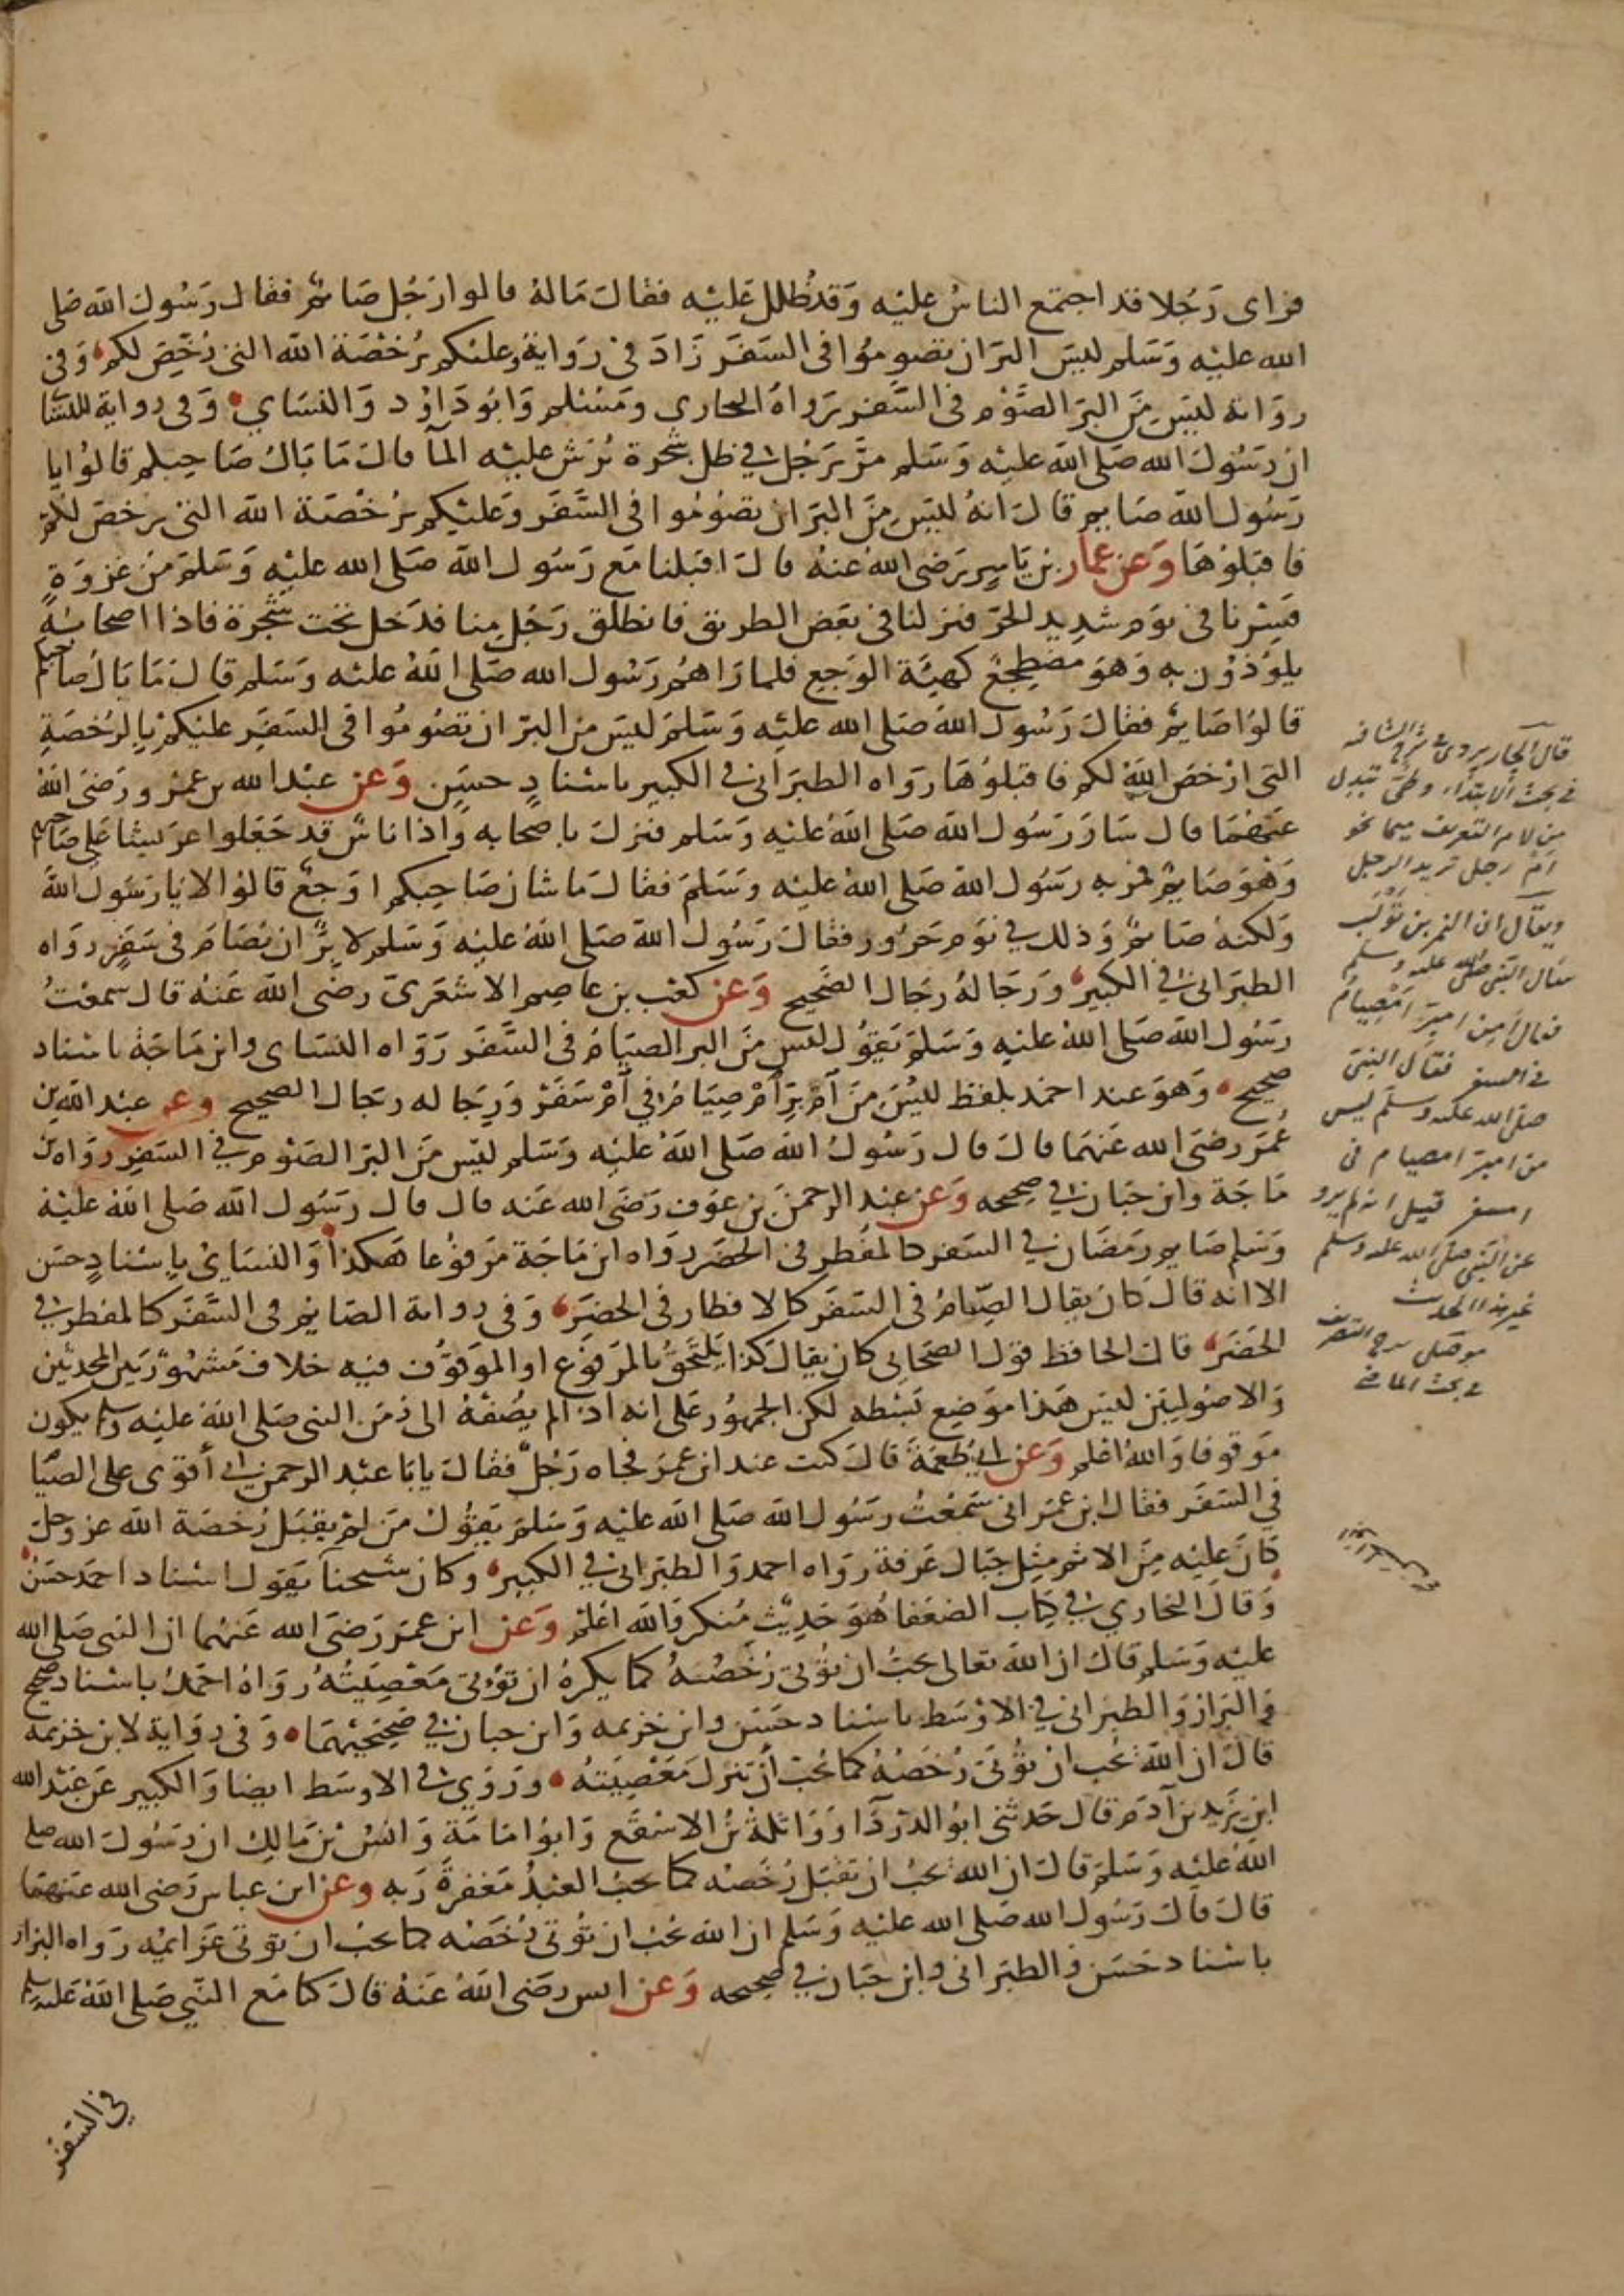 فراى رجلا قد اجتمع الناس عليه وقد ظلل عليه فقال ماله قالوا رجل صائم فقال رسول الله صلى
الله عليه وسلم ليس البر ان تصوموا فى السفر زاد فى رواية وعليكم برخصة الله التى رخص لكم وفى
رواية ليس من البر الصوم فى السفر رواه البخارى ومسلم وابو داود والنساي وفى رواية للنسا
ان رسول الله صلى الله عليه وسلم مر برجل في ظل شجرة يرش عليه المآ قال ما بال صاحبكم قالوا يا
رسول الله صايم قال انه ليس من البر ان تصوموا فى السفر وعليكم برخصة الله التى رخص لكم
فاقبلوها وعن عمار بن ياسر رضى الله عنه قال اقبلنا مع رسول الله صلى الله عليه وسلم من غزوة
فسرنا فى يوم شديد الحر فنزلنا فى بعض الطريق فانطلق رجل منا فدخل تحت شجرة فاذا اصحابه
يلوذون به وهو مضطجع كهيئة الوجع فلما راهم رسول الله صلى الله عليه وسلم قال ما بال صاحبكم
قالوا صايم فقال رسول الله صلى الله عليه وسلم ليس من البر ان تصوموا فى السفر عليكم بالرخصة
التى ارخص الله لكم فاقبلوها رواه الطبرانى في الكبير باسناد حسن وعن عبد الله بن عمرو رضى الله
عنهما قال سار رسول الله صلى الله عليه وسلم فنزل باصحابه واذا ناس قد جعلوا عريشا على صاحبهم
وهو صايم فمر به رسول الله صلى الله عليه وسلم فقال ما شان صاحبكم اوجع قالوا لا يا رسول الله
ولكنه صائم وذلك في يوم حرور فقال رسول الله صلى الله عليه وسلم لا بر ان يصام فى سفر رواه
الطبرانى في الكبير ورجاله رجال الصحيح وعن كعب بن عاصم الاشعرى رضى الله عنه قال سمعت
رسول الله صلى الله عليه وسلم يقول ليس من البر الصيام فى السفر رواه النساى وابن ماجة باسناد
صحيح وهو عند احمد بلفظ ليس من امبر امصيام في امسفر ورجاله رجال الصحيح وعن عبد الله بن
عمر رضى الله عنهما قال قال رسول الله صلى الله عليه وسلم ليس من البر الصوم في السفر رواه بن
ماجة وابن حبان في صحيحه وعن عبد الرحمن بن عوف رضى الله عنه قال قال رسول الله صلى الله عليه
وسلم صايم رمضان في السفر كالمفطر فى الحضر رواه ابن ماجة مرفوعا هكذا والنساي باسناد حسن
الا انه قال كان يقال الصيام فى السفر كالافطار فى الحضر وفى رواية الصايم فى السفر كالمفطر في
الحضر قال الحافظ قول الصحابى كان يقال كذا يلتحق بالمرفوع او الموقوف فيه خلاف مشهور بين المحدثين
والاصوليين ليس هذا موضع بسطه لكن الجمهور على انه اذا لم يضفه الى زمن النبى صلى الله عليه وسلم يكون
موقوفا والله اعلم وعن ابي طعمة قال كنت عند ابن عمر فجاه رجل فقال يا با عبد الرحمن اني أقوى على الصيا
في السفر فقال ابن عمر انى سمعت رسول الله صلى الله عليه وسلم يقول من لم يقبل رخصة الله عز وجل
كان عليه من الاثم مثل جبال عرفة رواه احمد والطبرانى في الكبير وكان شيخنا يقول اسناد احمد حسن
وقال البخاري في كتاب الضعفا هو حديث منكر والله اعلم وعن ابن عمر رضى الله عنهما ان النبى صلى الله
عليه وسلم قال ان الله تعالى يحب ان تؤتى رخصه كما يكره ان تؤتى معصيته رواه احمد باسناد صحيح
والبزاز والطبرانى في الاوسط باسناد حسن وابن خزيمه وابن حبان في صحيحيهما وفى رواية لابن خزيمه
قال ان الله يحب ان تؤتى رخصه كما يحب أن تترك معصيته وروي في الاوسط ايضا والكبير عن عبد الله
ابن يزيد بن آدم قال حدثنى ابو الدردآ وواثلة بن الاسقع وابو امامة وانس بن مالك ان رسول الله صلى
الله عليه وسلم قال ان الله يحب ان تقبل رخصه كما يحب العبد مغفرة ربه وعن ابن عباس رضى الله عنهما
قال قال رسول الله صلى الله عليه وسلم ان الله يحب ان تؤتى رخصه كما يحب ان توتى عزائمه رواه البزار
باسناد حسن والطبرانى وابن حبان في صحيحه وعن انس رضى الله عنه قال كنا مع النبي صلى الله عليه وسلم
في السفر
قال الجاربردى في شرح الشافيه
في بحث الابتداء وطئ تبدل
من لام التعريف ميما نحو
ام رجل تريد الرجل
ويقال ان النمر بن تولب
سال النبي صلى الله عليه وسلم
فقال أمن امبر امصيام
فى السفر فقال النبى
صلى الله عليه وسلم ليس
من امبر امصيام فى
امسفر قيل انه لم يرو
عن النبى صلى الله عليه وسلم
غير هذا الحديث
شرح التصريف
في بحث الماضي